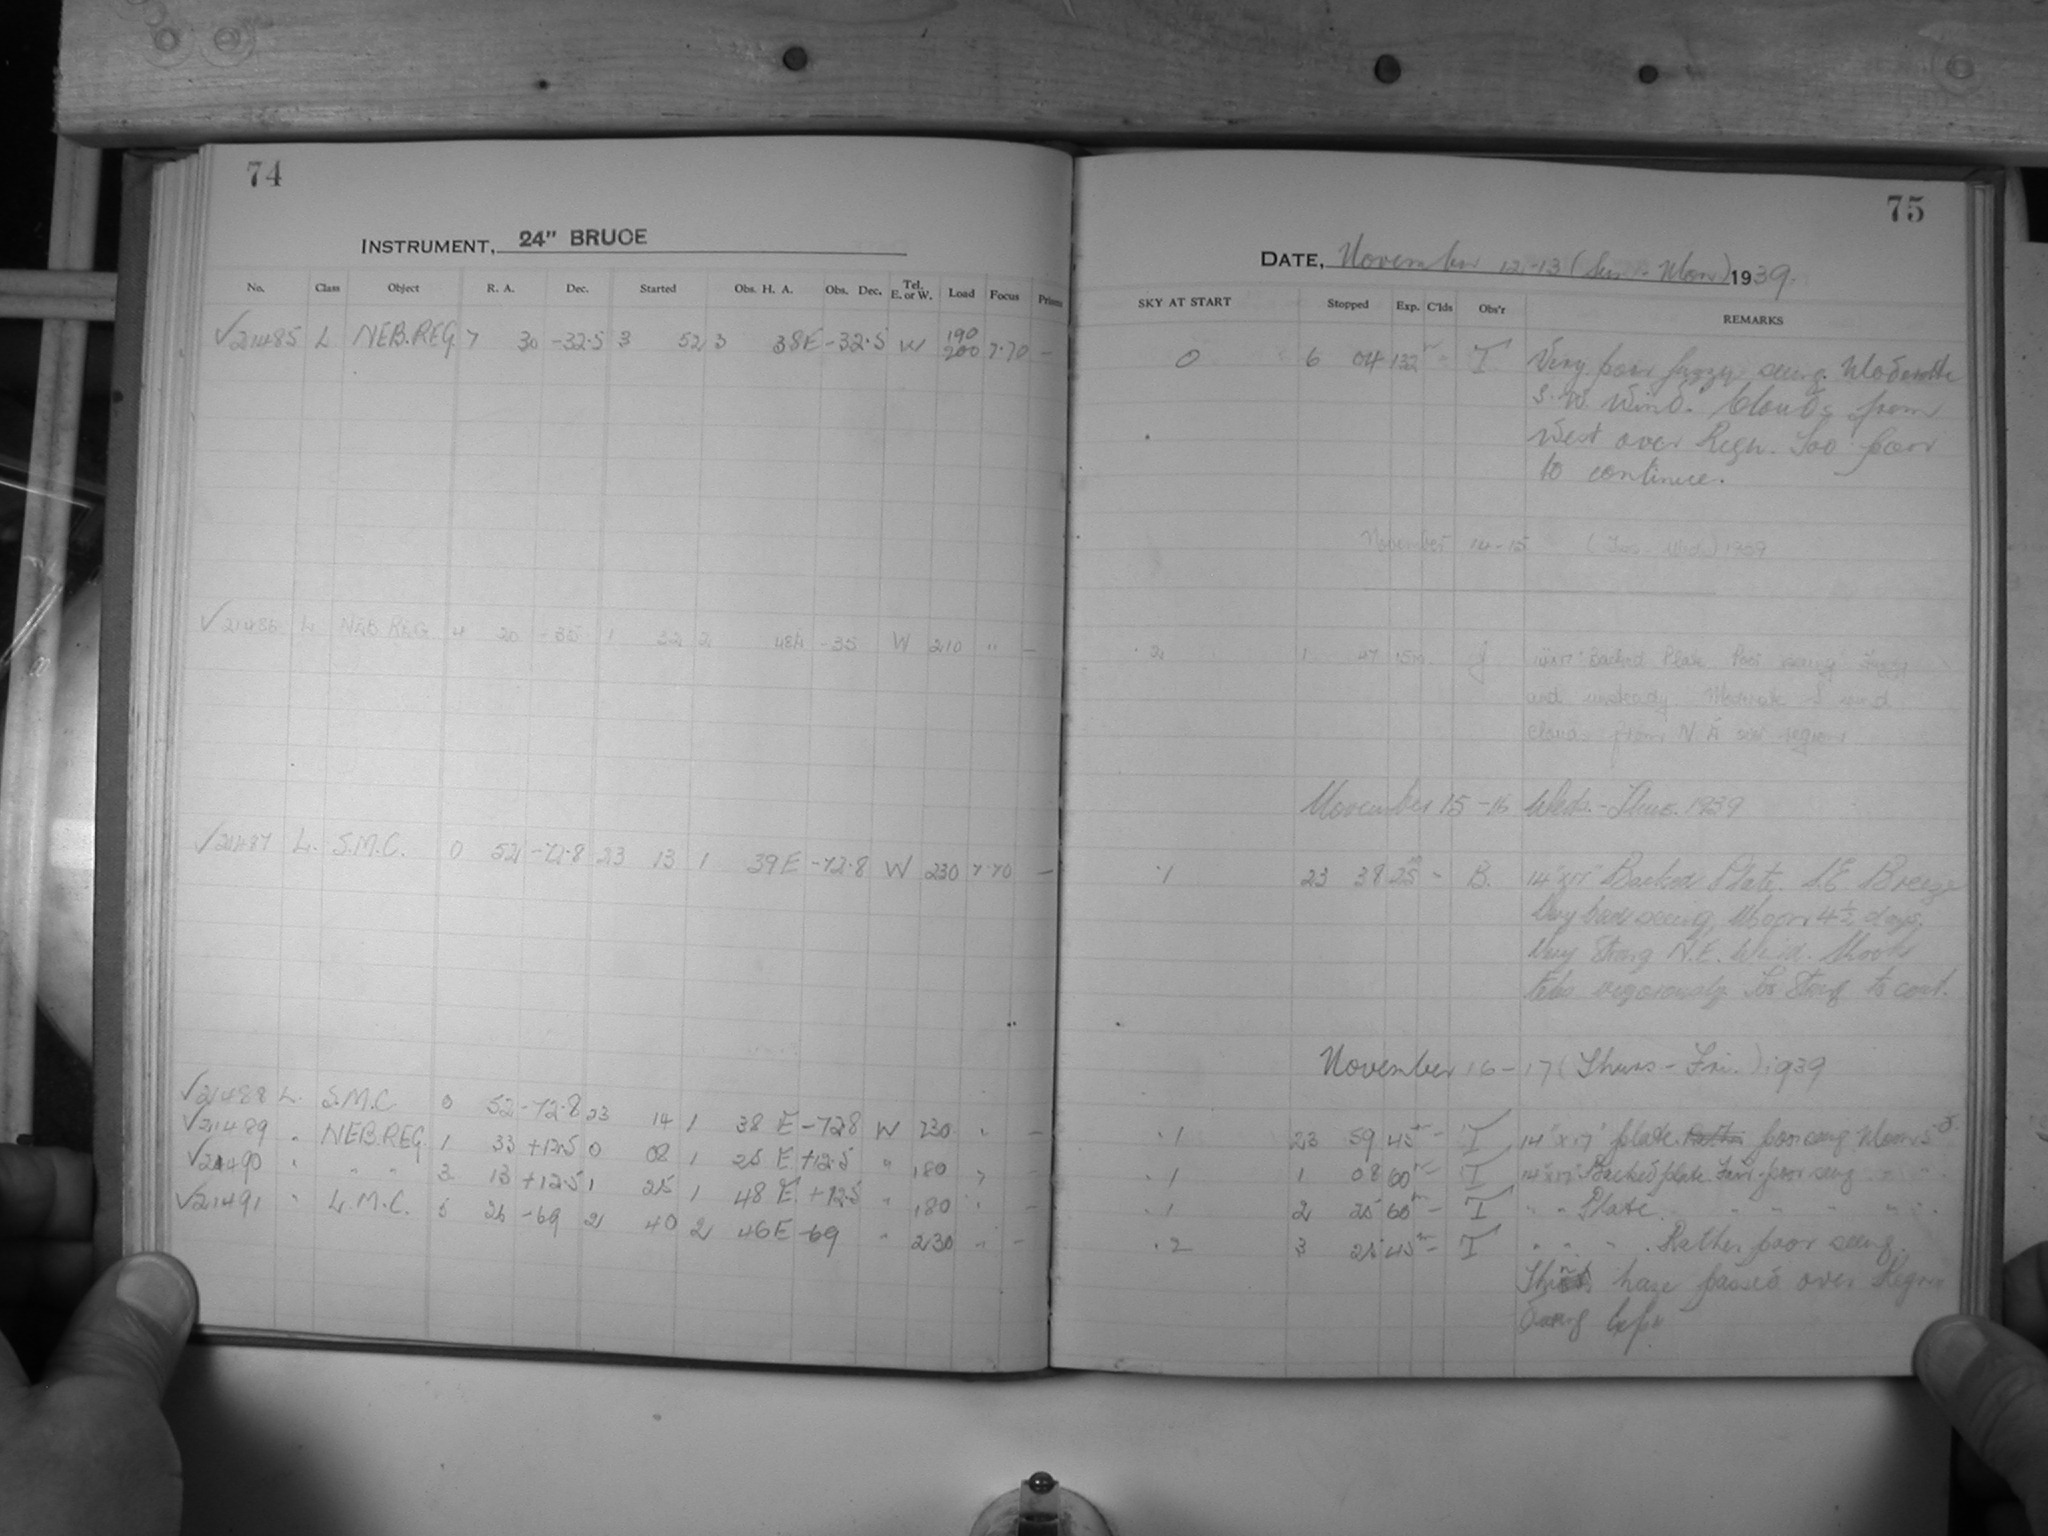 74
INSTRUMENT, 24" BRUCE
No. Class Object R. A. Dec. Started Obs. H. A. Obs. Dec. Tel. E. or W. Load Focus Prisms
✓21485 L NEB.REG. 7 30 -32.5 3 52 3 38E -32.5 W 190 200 7.70 -
✓21486 L NEB REG 4 20 -35 1 32 2 48E -35 W 210 " -
✓21487 L. S.M.C. 0 52 -72.8 23 13 1 39E -72.8 W 230 7.70 -
✓21488 L. S.M.C. 0 52 -72.8 23 14 1 38 E -72.8 W 230 " -
✓21489 " NEB.REG. 1 33 +12.5 0 08 1 25 E +12.5 " 180 " -
✓21490 " " " 3 13 +12.5 1 25 1 48 E +12.5 " 180 " -
✓21491 " L.M.C. 5 26 -69 2 40 2 46E -69 " 230 " -
75
DATE, November 12-13 (Sun - Mon) 1939.
SKY AT START Stopped Exp. C'lds Obs'r REMARKS
0 6 04 132m - T Very poor fuzzy seeing. Moderate
S.W. Wind. Clouds from
West over Regn. Too poor
to continue.
November 14-15 (Tues - Wed.) 1939
.2 1 47 15m J Backed Plate Poor seeing
and unsteady Moderate S wind
clouds from N. over region
November 15-16 Weds.-Thur. 1939
.1 23 38 25m - B. 14"x17" Backed Plate. S.E Breeze
Very bad seeing, Moon 4½ days.
Very Strong N.E. Wind. Shook
Tube vigorously Too Strong to cont.
November 16-17 (Thurs - Fri.) 1939
.1 23 59 45m - T 14"x17" plate. poor seeing Moon 5d.
.1 1 08 60m - T 14"x17" Backed plate. Fair-poor seeing " "
.1 2 25 60m - T " " Plate. " " " " "
.2 3 25 45m - T " " " . Rather poor seeing.
haze passed over Region
during expn